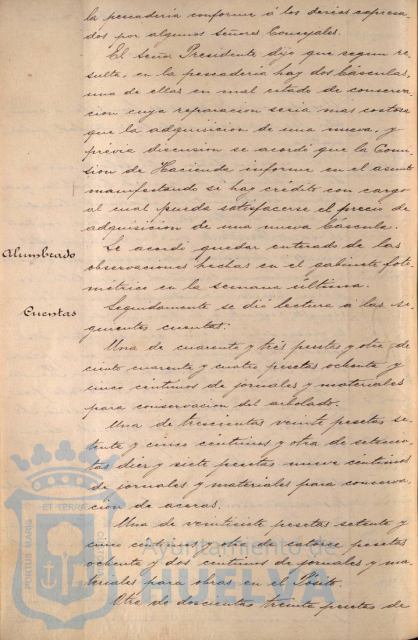 la pescadería conforme á los deseos expresa-
dos por algunos Señores Concejales.
El Señor Presidente dijo que segun re-
sulta, en la pescadería hay dos básculas,
una de ellas en mal estado de conserva-
cion cuya reparacion seria mas costosa
que la adquisicion de una nueva, y
prévia discusion se acordó que la Comi-
sion de Hacienda informe en el asunto
manifestando si hay crédito con cargo
al cual pueda satisfacerse el precio de
adquisicion de una nueva báscula.
Alumbrado
Se acordó quedar enterado de las
observaciones hechas en el gabinete foto-
métrico en la semana última.
Cuentas
Seguidamente se dió lectura á las si-
guientes cuentas:
Una de cuarenta y tres pesetas y otra de
ciento cuarenta y cuatro pesetas ochenta y
cinco céntimos de jornales y materiales
para conservacion del arbolado.
Una de trescientas veinte pesetas se-
tenta y cinco céntimos y otra de setecien-
tas diez y siete pesetas nueve céntimos
de jornales y materiales para conserva-
cion de aceras.
Una de veintisiete pesetas setenta y
cinco céntimos y otra de catorce pesetas
ochenta y dos céntimos de jornales y ma-
teriales para obras en el Pósito.
Otra de doscientas treinta pesetas de
PORTUS MARIS
ET TERRÆ
CUSTODIA
Ayuntamiento de
HUELVA